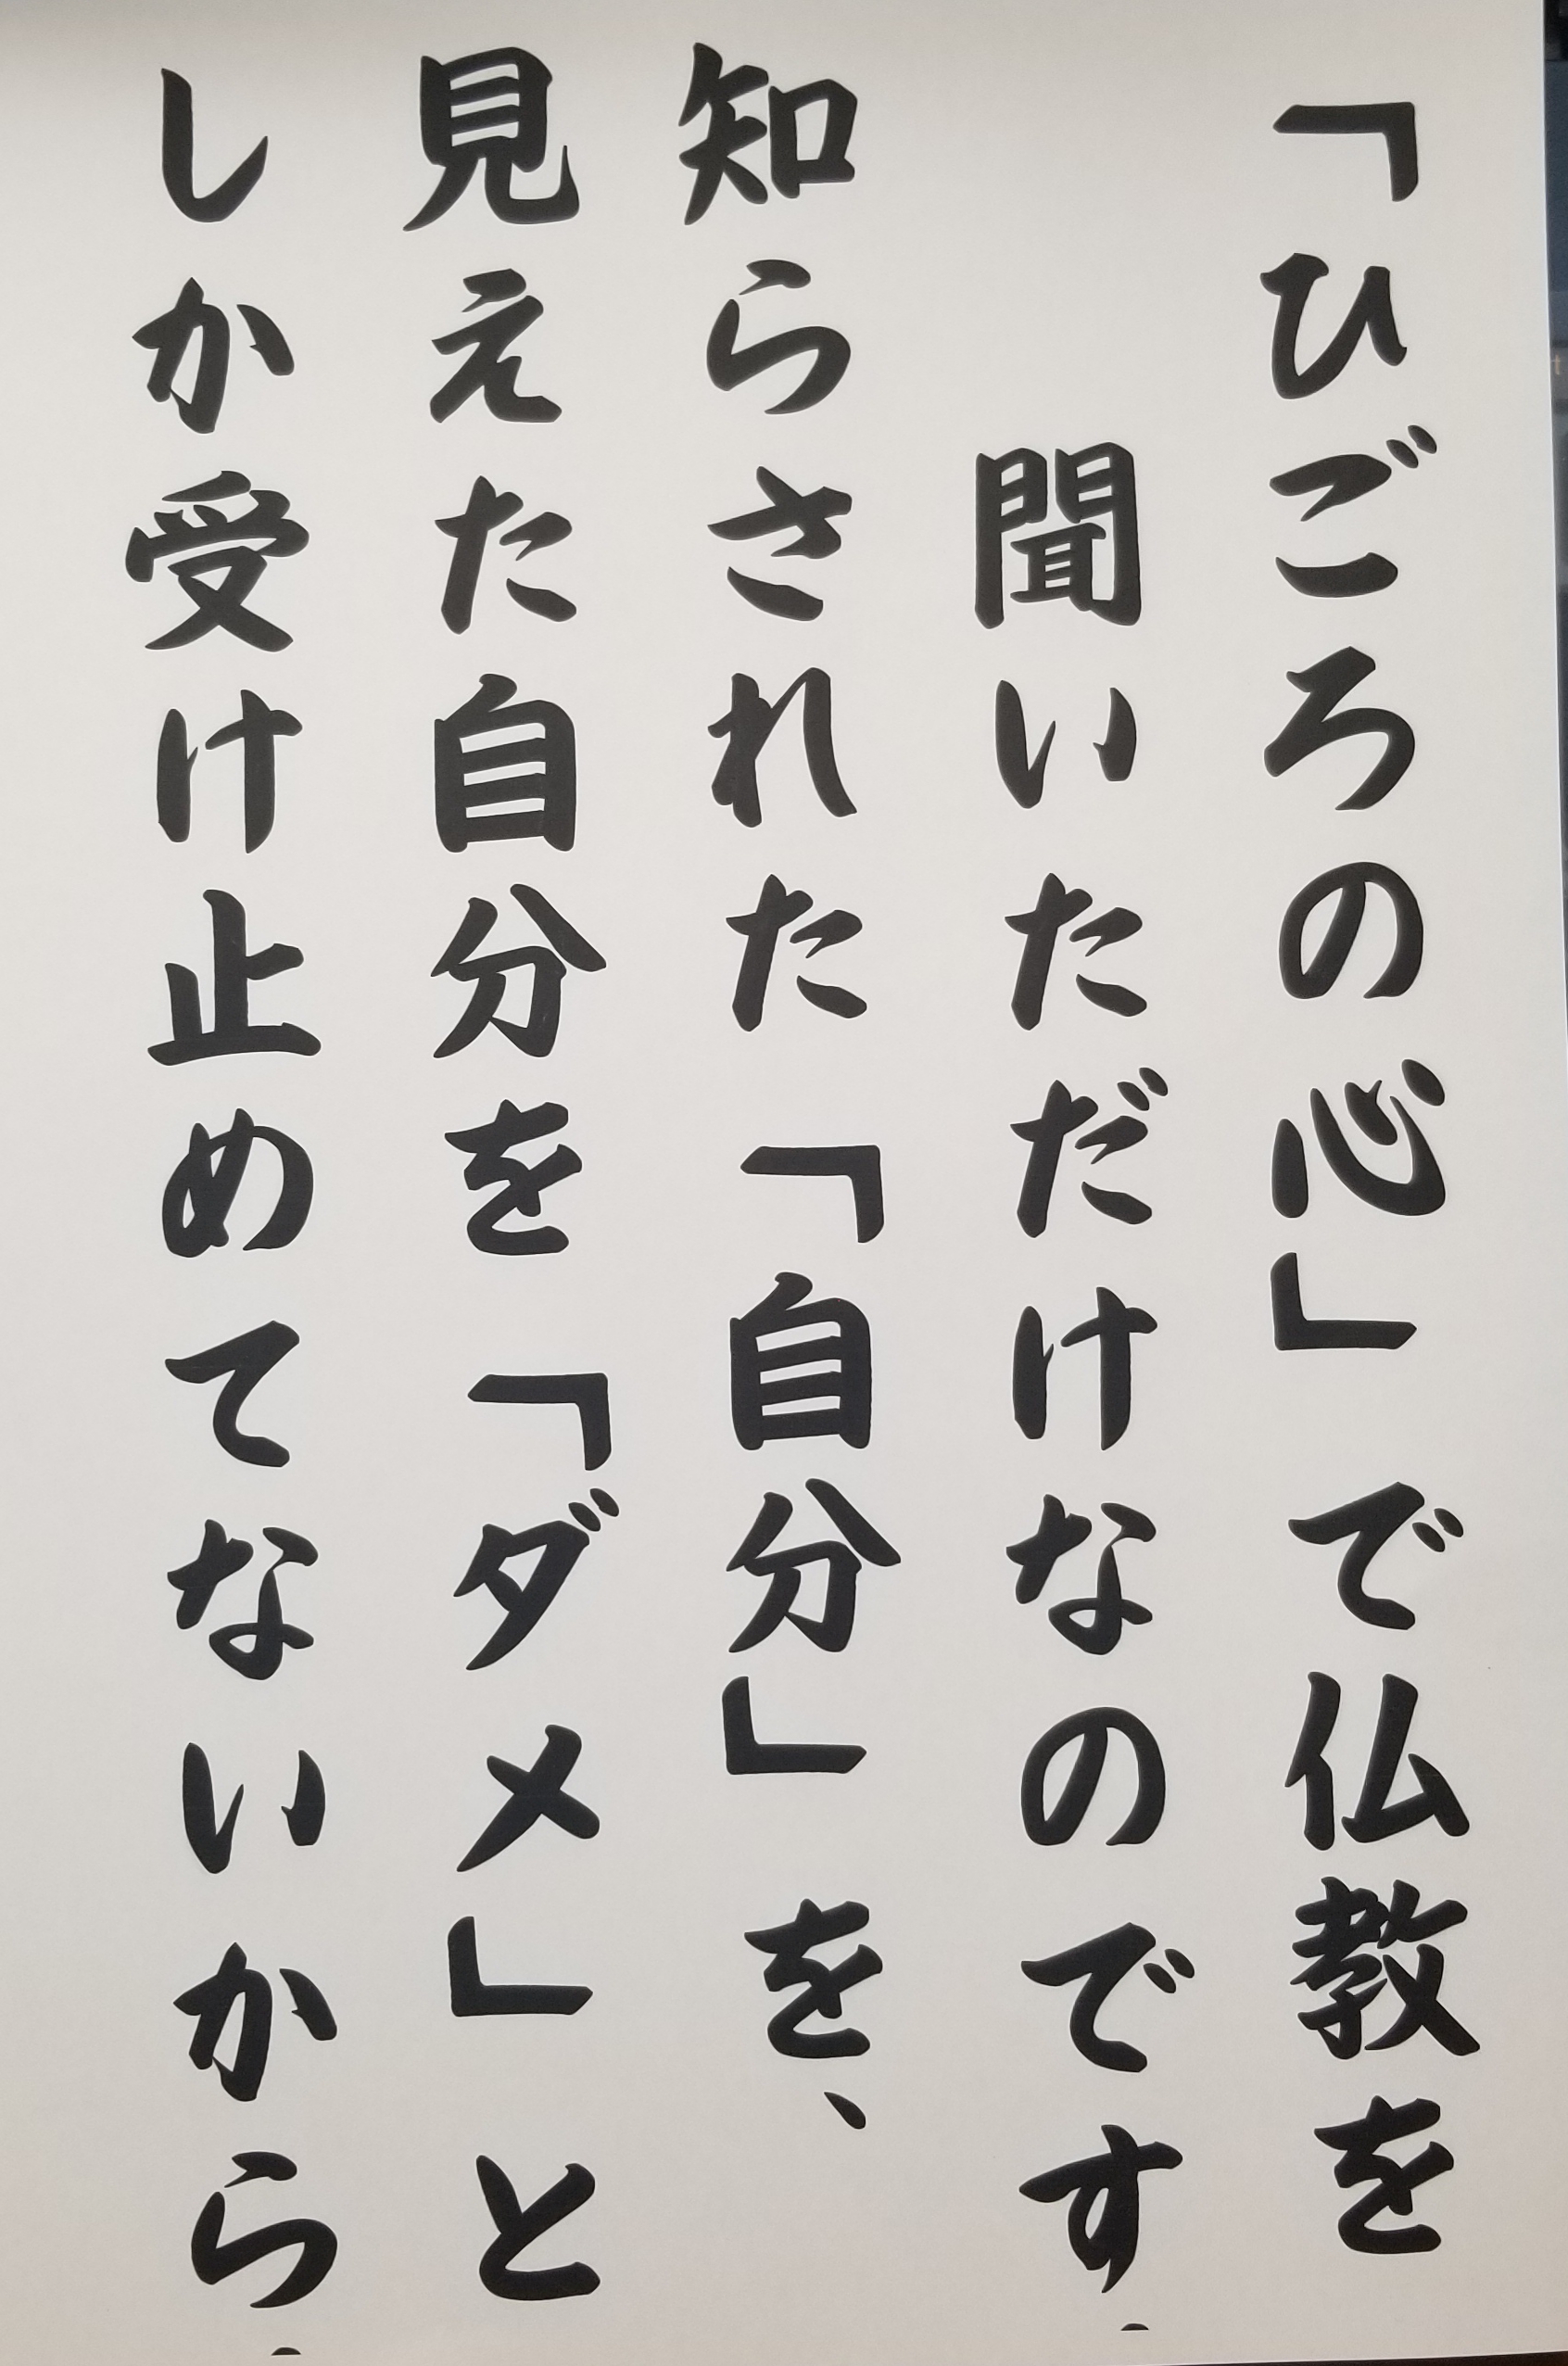 「ひごろの心」で仏教を
聞いただけなのです
知らされた「自分」を、
見えた自分を「ダメ」と
しか受け止めてないから